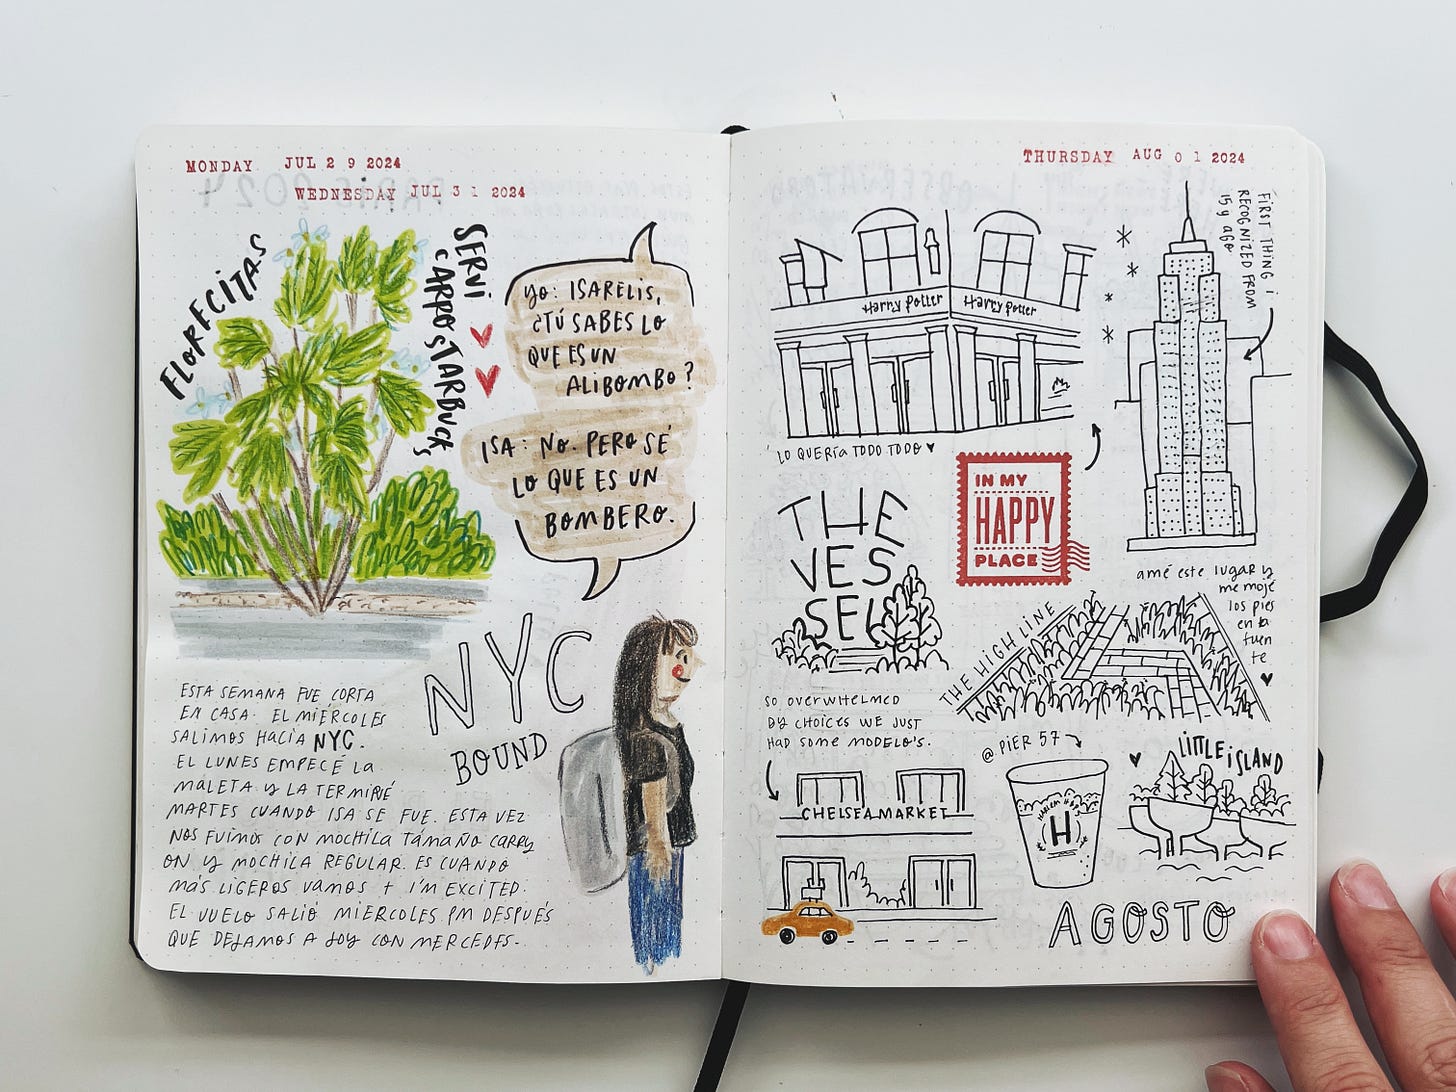 MONDAY JUL 29 2024
WEDNESDAY JUL 31 2024
FLORECITAS
SERVI
CARRO STARBUCK'S
YO: ISARELIS,
¿TÚ SABES LO
QUE ES UN
ALIBOMBO?
ISA: NO. PERO SÉ
LO QUE ES UN
BOMBERO.
NYC
BOUND
ESTA SEMANA FUE CORTA
EN CASA. EL MIÉRCOLES
SALIMOS HACIA NYC.
EL LUNES EMPECÉ LA
MALETA Y LA TERMINÉ
MARTES CUANDO ISA SE FUE. ESTA VEZ
NOS FUIMOS CON MOCHILA TAMAÑO CARRY
ON Y MOCHILA REGULAR. ES CUANDO
MÁS LIGEROS VAMOS + I'M EXCITED.
EL VUELO SALIÓ MIERCOLES PM DESPUÉS
QUE DEJAMOS A JOY CON MERCEDES.
THURSDAY AUG 01 2024
Harry Potter Harry Potter
LO QUERÍA TODO TODO
FIRST THING I
RECOGNIZED FROM
15 y AGO
IN MY
HAPPY
PLACE
THE
VES
SEL
amé este lugar y
me mojé
los pies
en la
fuen
te
THE HIGH LINE
SO OVERWHELMED
BY CHOICES WE JUST
HAD SOME MODELO'S.
CHELSEA MARKET
@ PIER 57
H
LITTLE ISLAND
AGOSTO